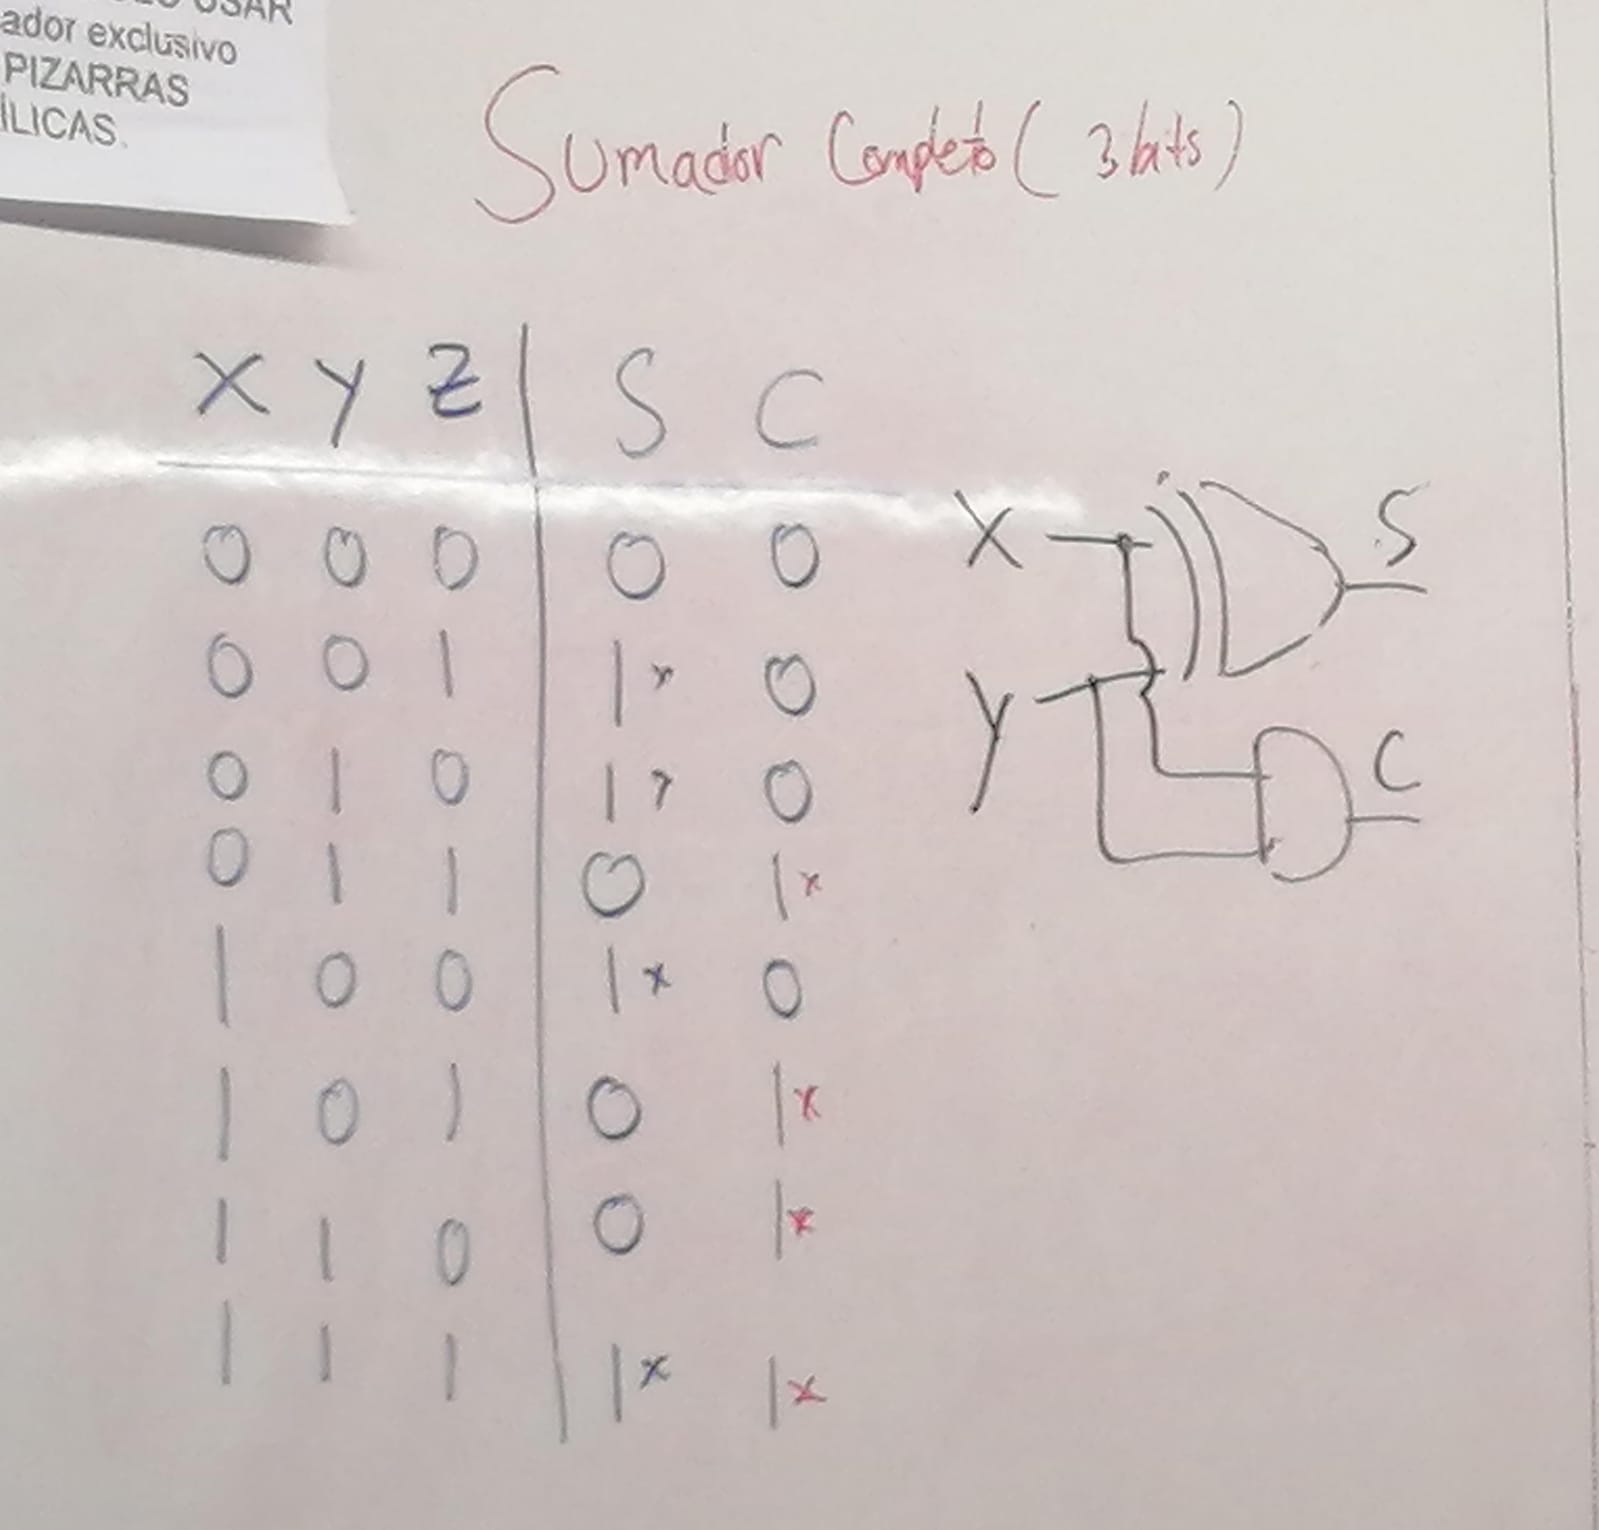 ador exclusivo
PIZARRAS
ÍLICAS.
Sumador Completo ( 3 bits )
X Y Z | S C
0 0 0 | 0 0
0 0 1 | 1x 0
0 1 0 | 1x 0
0 1 1 | 0 1x
1 0 0 | 1x 0
1 0 1 | 0 1x
1 1 0 | 0 1x
1 1 1 | 1x 1x
X S
Y C